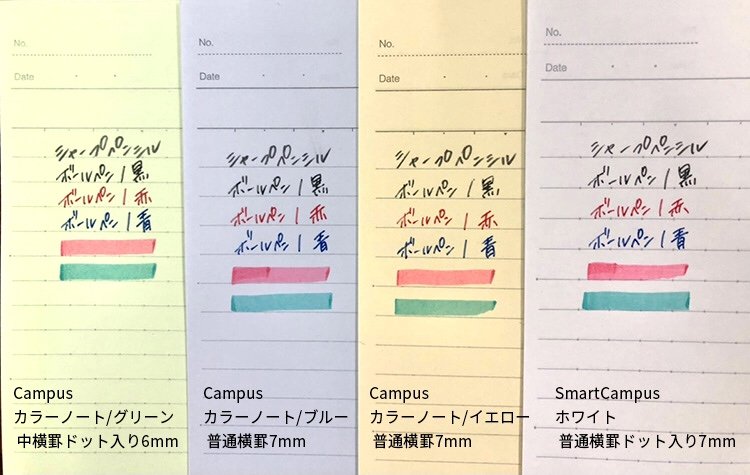 No.
Date
シャープペンシル
ボールペン/黒
ボールペン/赤
ボールペン/青
Campus
カラーノート/グリーン
中横罫ドット入り6mm
No.
Date
シャープペンシル
ボールペン/黒
ボールペン/赤
ボールペン/青
Campus
カラーノート/ブルー
普通横罫7mm
No.
Date
シャープペンシル
ボールペン/黒
ボールペン/赤
ボールペン/青
Campus
カラーノート/イエロー
普通横罫7mm
No.
Date
シャープペンシル
ボールペン/黒
ボールペン/赤
ボールペン/青
SmartCampus
ホワイト
普通横罫ドット入り7mm